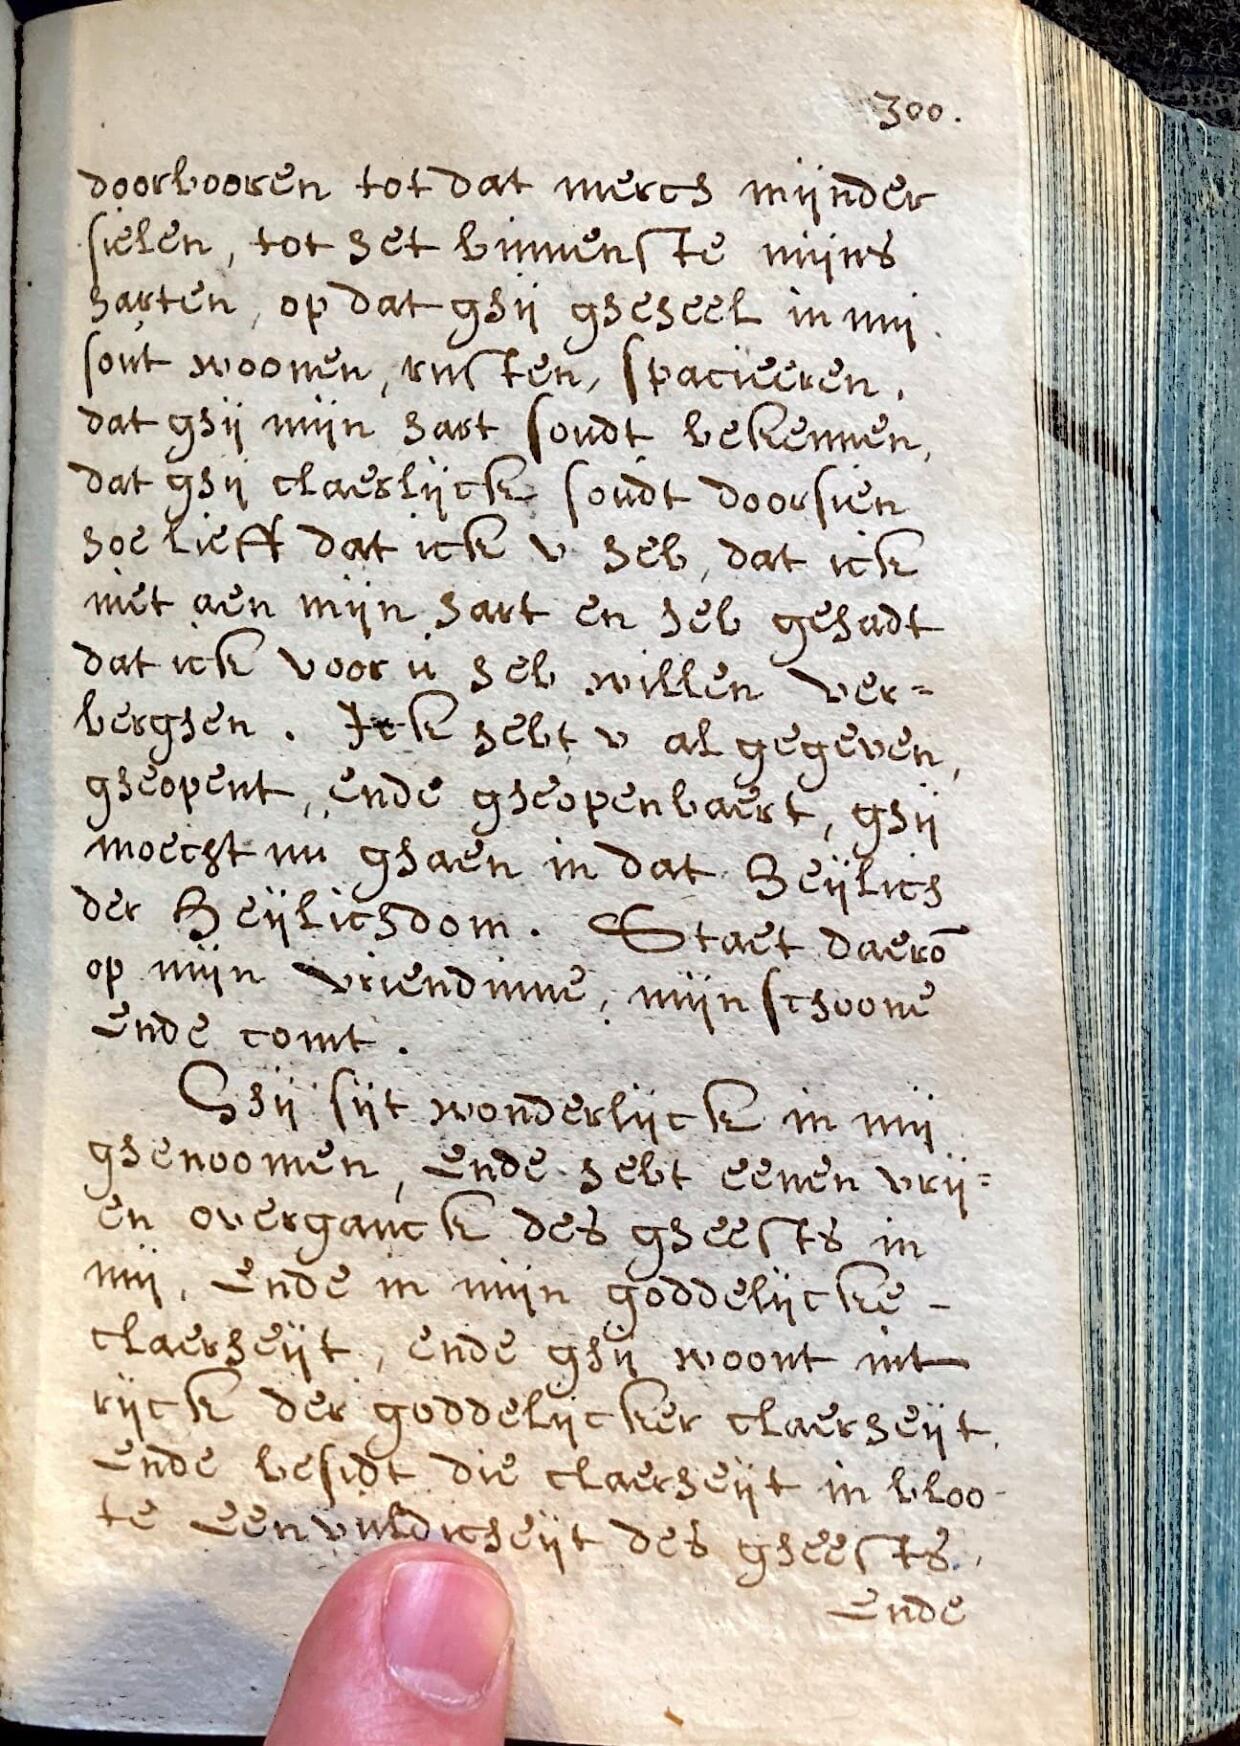 300.
doorbooren tot dat merch mijnder
sielen, tot het binnenste mijns
harten, op dat ghij gheheel in mij
sout woonen, rusten, spacieeren,
dat ghij mijn hart soudt bekennen,
dat ghij claerlijck soudt doorsien
hoe lieff dat ick v heb, dat ick
niet aen mijn hart en heb gehadt
dat ick voor u heb willen ver=
berghen. Ick hebt v al gegeven,
gheopent, ende gheopenbaert, ghij
moecht nu ghaen in dat Heijlich
der Heijlichdom. Staet daerō
op mijn vriendinne, mijn schoone
ende comt.
Ghij sijt wonderlijck in mij
ghenoomen, ende hebt eenen vrij=
en overganck des gheests in
mij, ende in mijn goddelijcke -
claerheijt, ende ghij woont int
rijck der goddelijcker claerheijt,
ende besidt die claerheijt in bloo-
te eenvuldicheijt des gheests.
Ende